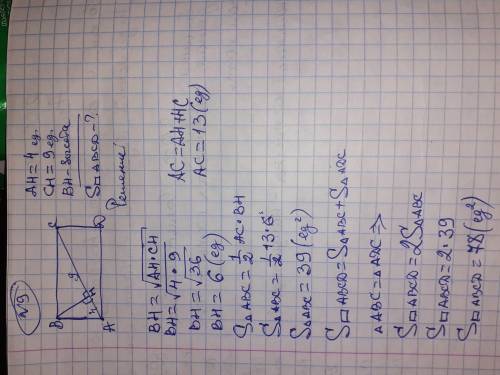 №9
B C
9
4 H
A D
AH = 4 eg.
CH = 9 eg.
BH = высота
S□ABCD = ?
Решение:
BH = √AH·CH
BH = √4·9
BH = √36
BH = 6 (eg)
AC = AH + HC
AC = 13 (eg)
S△ABC = 1/2 AC·BH
S△ABC = 1/2 13·6
S△ABC = 39 (eg²)
S□ABCD = S△ABC + S△ADC
△ABC = △ADC =>
S□ABCD = 2S△ABC
S□ABCD = 2·39
S□ABCD = 78 (eg²)